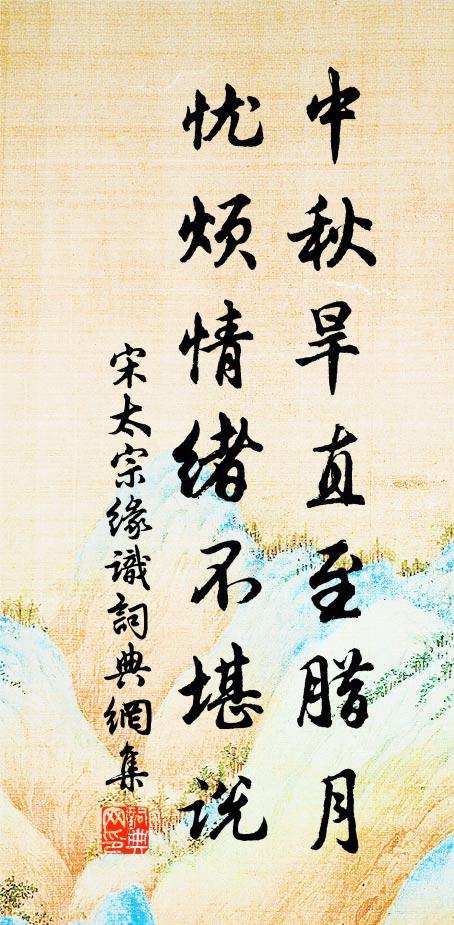 中秋旱直至腊月
忧烦情绪不堪说
宋太宗缘識詞典網集
詞典